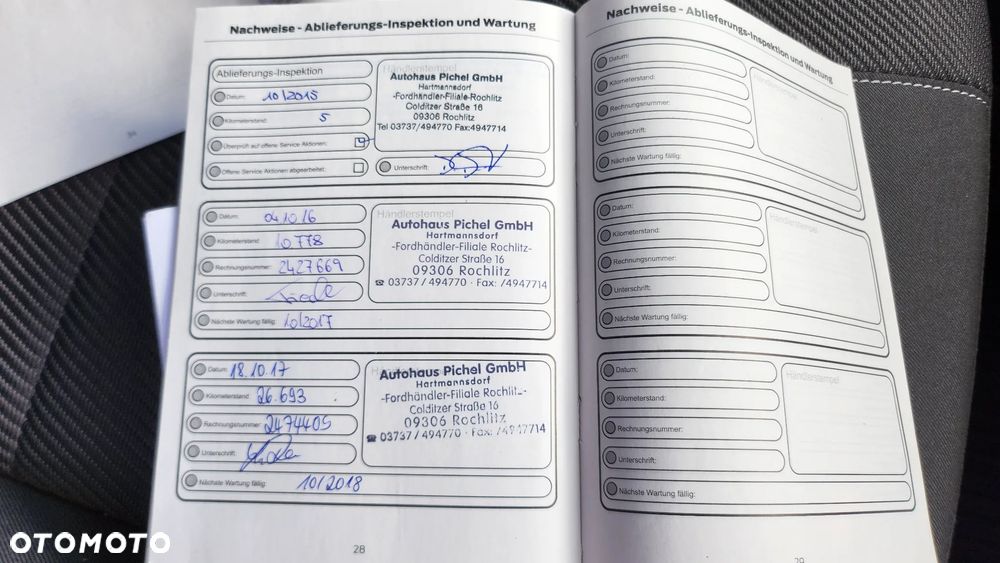 Nachweise - Ablieferungs-Inspektion und Wartung
Ablieferungs-Inspektion
Datum: 10/2015
Kilometerstand: 5
Überprüft auf offene Service Aktionen:
Offene Service Aktionen abgearbeitet:
Händlerstempel
Autohaus Pichel GmbH
Hartmannsdorf
-Fordhändler-Filiale-Rochlitz
Colditzer Straße 16
09306 Rochlitz
Tel 03737/494770 Fax:4947714
Unterschrift:
Datum: 04.10.16
Kilometerstand: 10778
Rechnungsnummer: 2427669
Unterschrift:
Nächste Wartung fällig: 10/2017
Händlerstempel
Autohaus Pichel GmbH
Hartmannsdorf
-Fordhändler-Filiale Rochlitz-
Colditzer Straße 16
09306 Rochlitz
☎ 03737/494770 · Fax: /4947714
Datum: 18.10.17
Kilometerstand: 26.693
Rechnungsnummer: 2474405
Unterschrift:
Nächste Wartung fällig: 10/2018
Autohaus Pichel GmbH
Hartmannsdorf
-Fordhändler-Filiale Rochlitz-
Colditzer Straße 16
09306 Rochlitz
☎ 03737/494770 · Fax: /4947714
28
Nachweise - Ablieferungs-Inspektion und Wartung
Datum:
Kilometerstand:
Rechnungsnummer:
Unterschrift:
Nächste Wartung fällig:
Händlerstempel
Datum:
Kilometerstand:
Rechnungsnummer:
Unterschrift:
Nächste Wartung fällig:
Händlerstempel
Datum:
Kilometerstand:
Rechnungsnummer:
Unterschrift:
Nächste Wartung fällig:
Händlerstempel
29
OTOMOTO